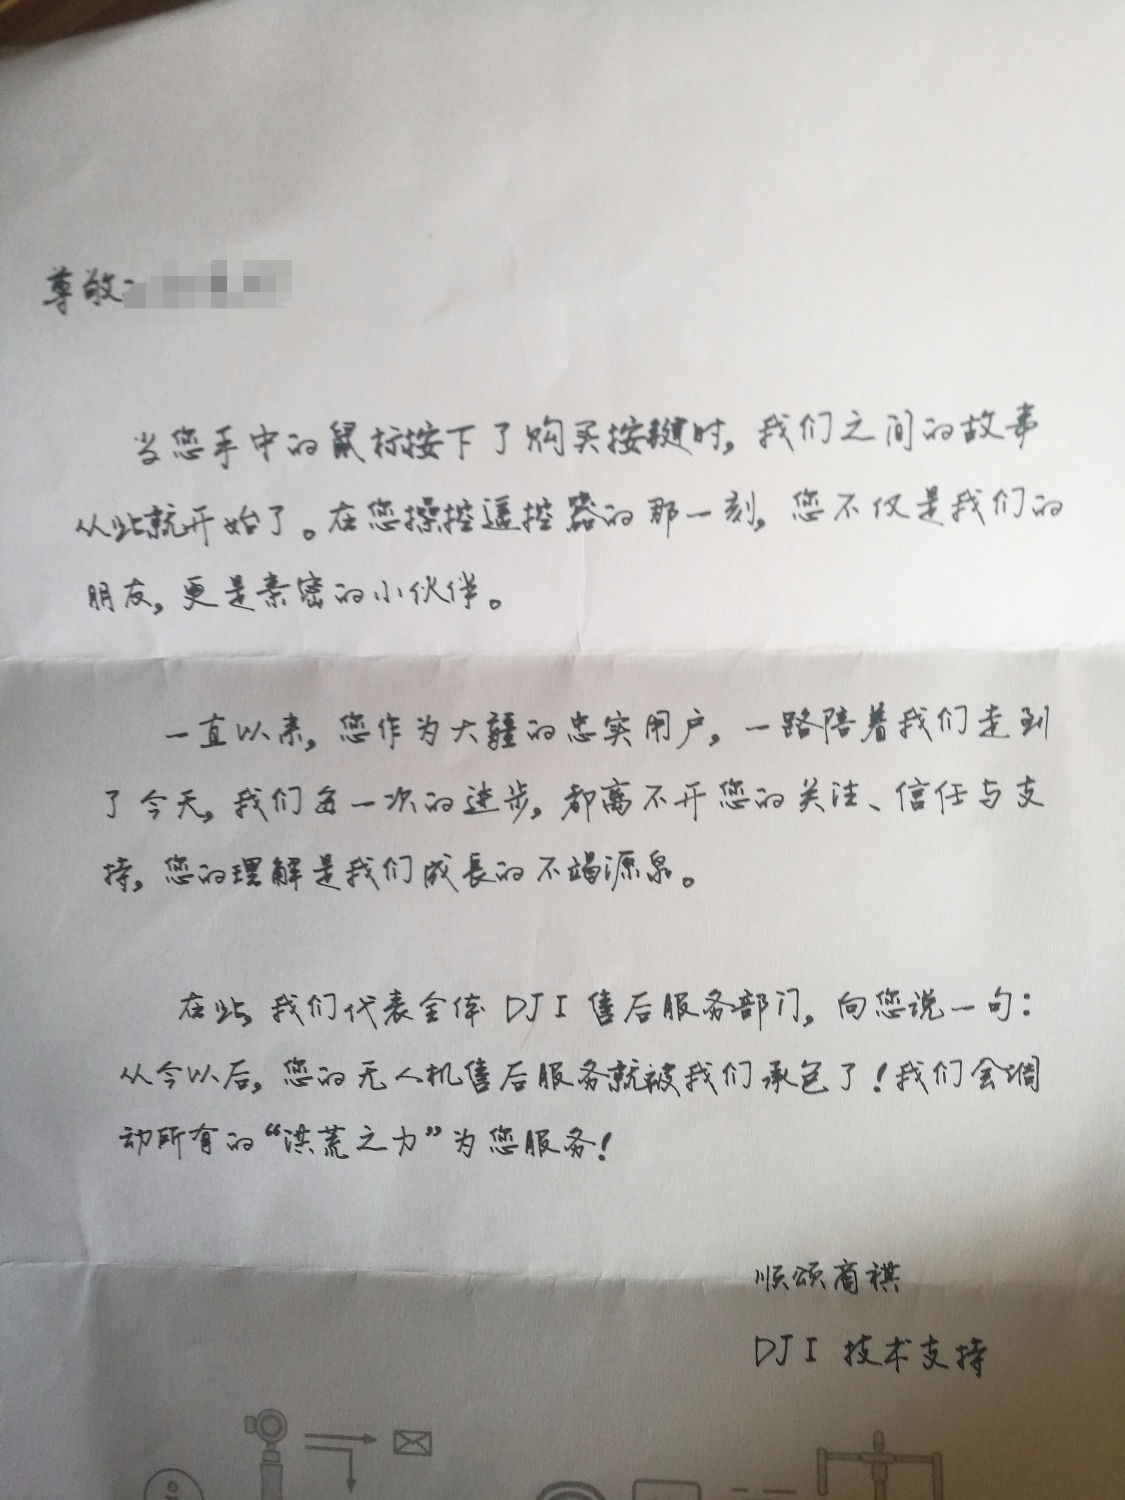 尊敬
当您手中的鼠标按下了购买按键时，我们之间的故事
从此就开始了。在您操控遥控器的那一刻，您不仅是我们的
朋友，更是亲密的小伙伴。
一直以来，您作为大疆的忠实用户，一路陪着我们走到
了今天，我们每一次的进步，都离不开您的关注、信任与支
持，您的理解是我们成长的不竭源泉。
在此，我们代表全体 DJI 售后服务部门，向您说一句：
从今以后，您的无人机售后服务就被我们承包了！我们会调
动所有的“洪荒之力”为您服务！
顺颂商祺
DJI 技术支持